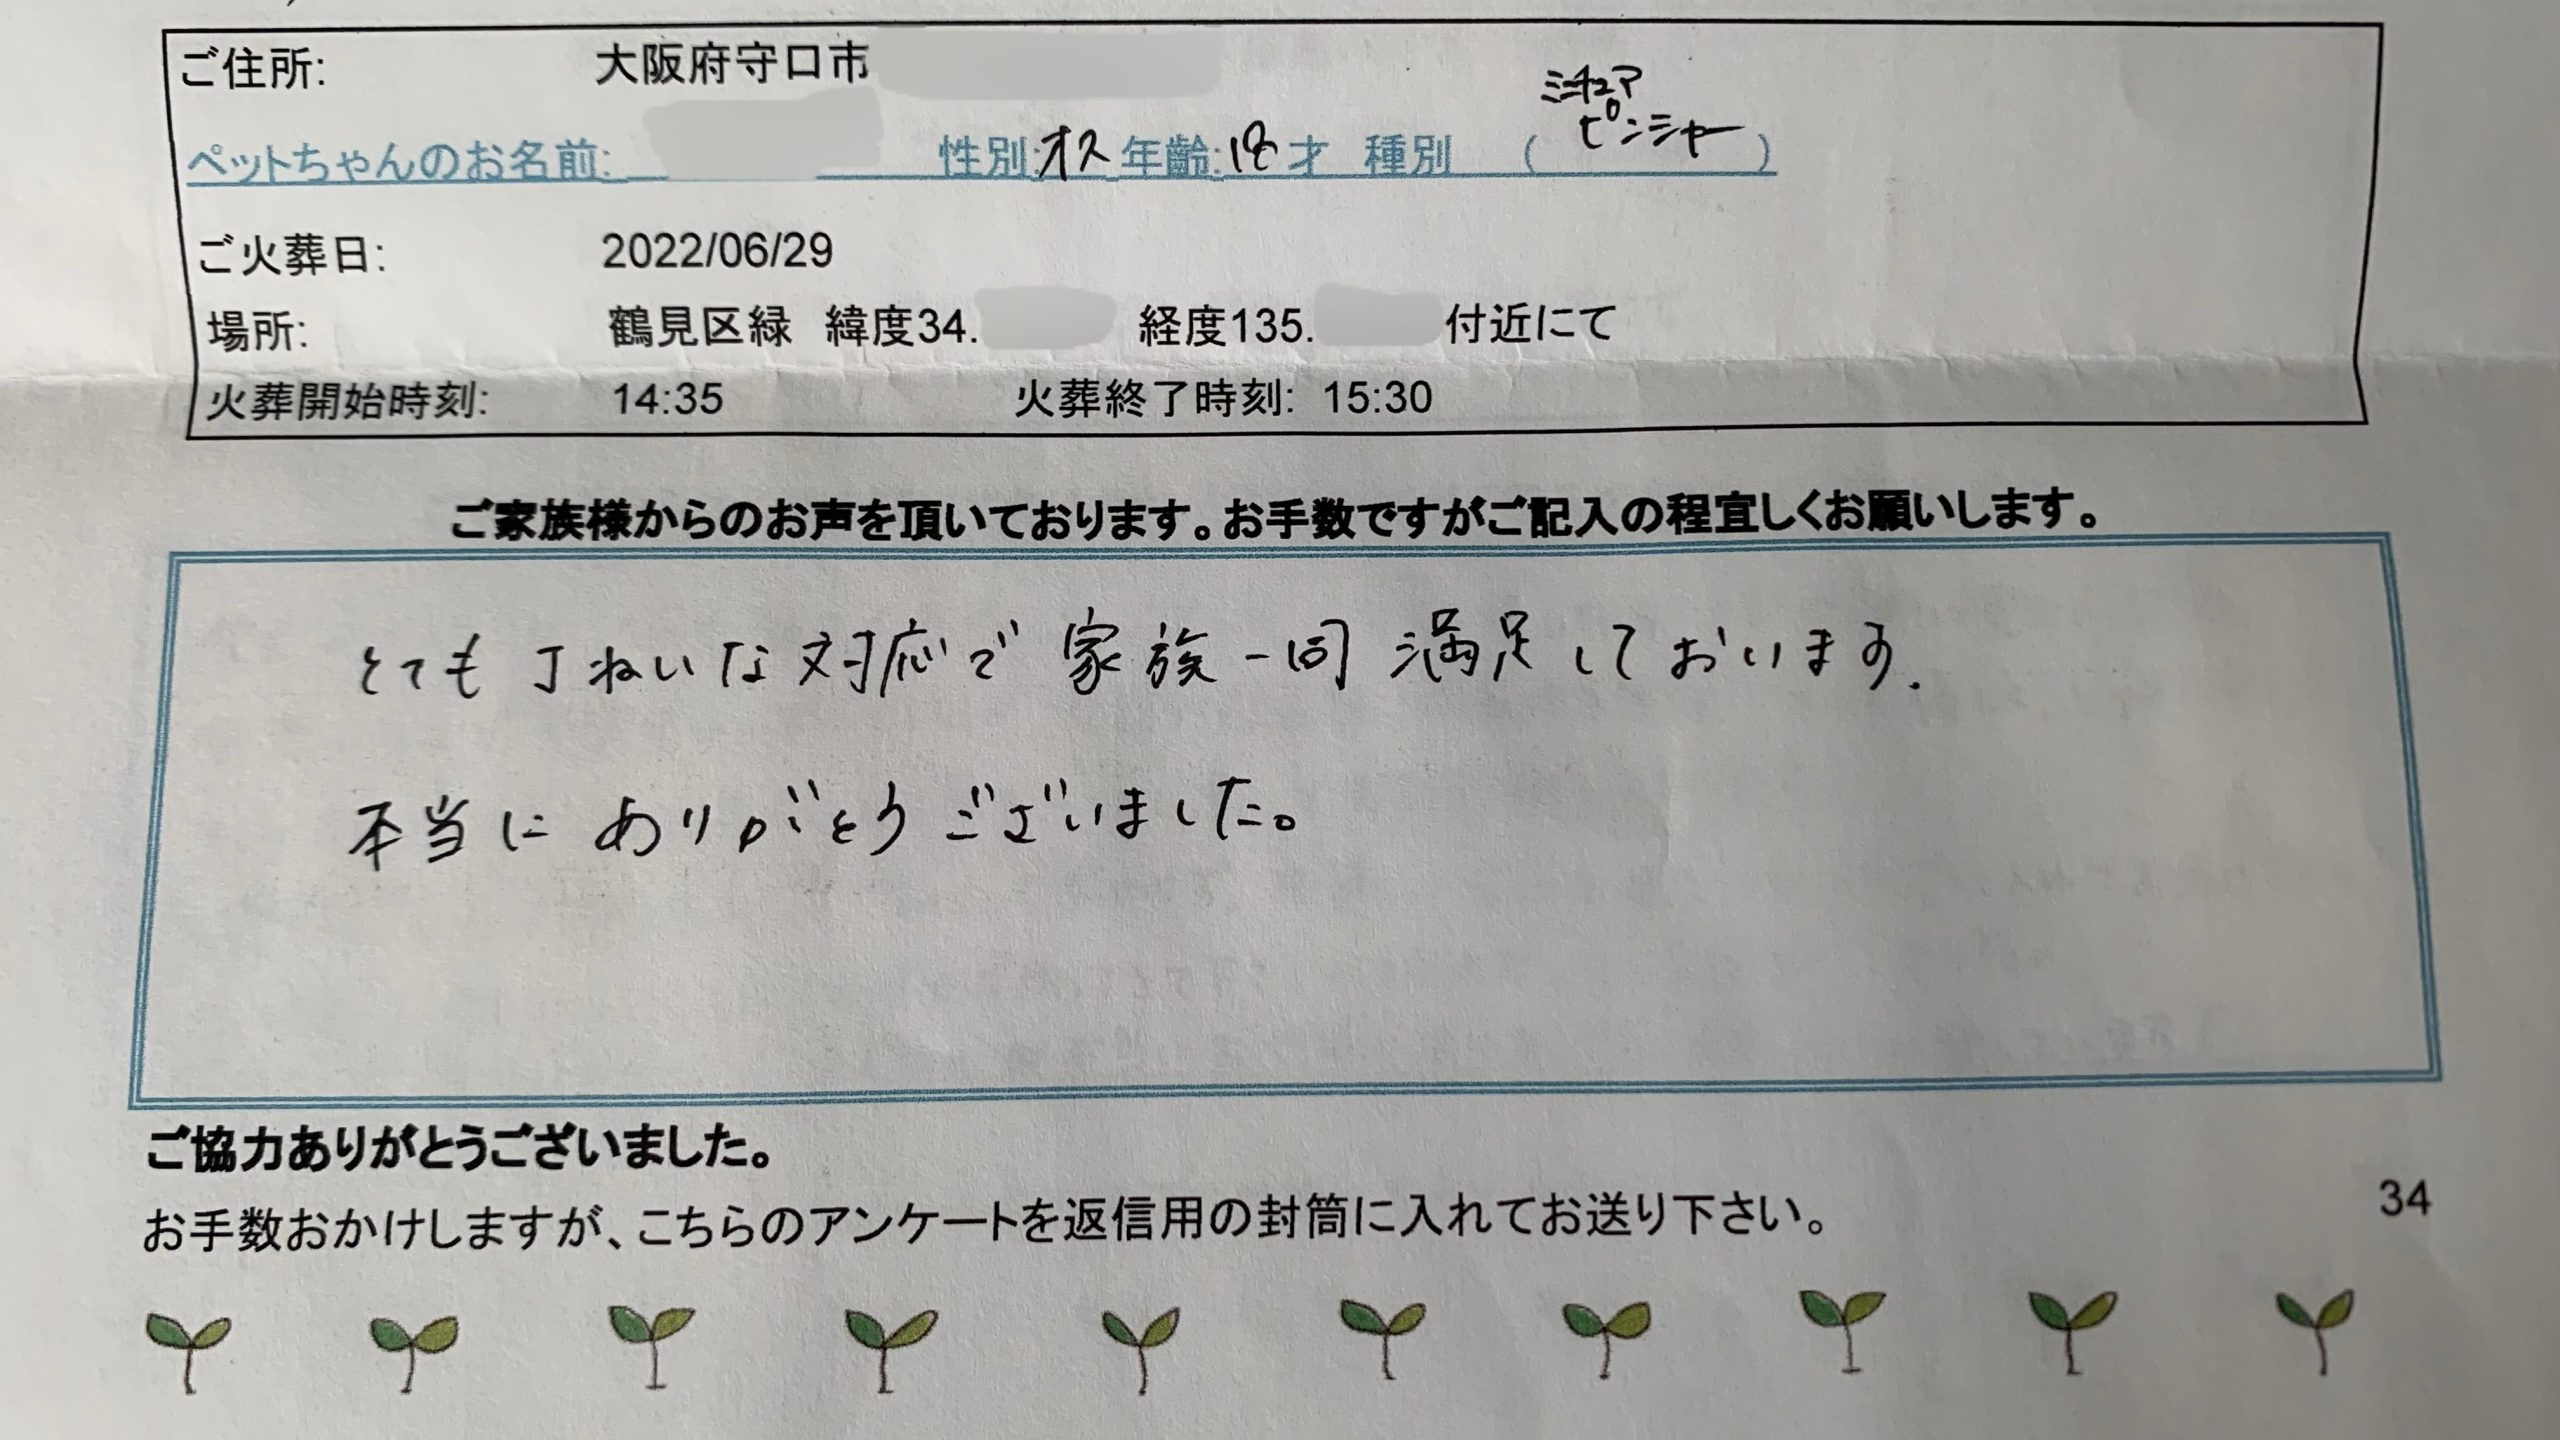 ご住所: 大阪府守口市
ミニチュア
ピンシャー
ペットちゃんのお名前: 性別:オス 年齢:18才 種別 ( )
ご火葬日: 2022/06/29
場所: 鶴見区緑 緯度34. 経度135. 付近にて
火葬開始時刻: 14:35 火葬終了時刻: 15:30
ご家族様からのお声を頂いております。お手数ですがご記入の程宜しくお願いします。
とても丁ねいな対応で家族一同満足しております.
本当にありがとうございました。
ご協力ありがとうございました。
お手数おかけしますが、こちらのアンケートを返信用の封筒に入れてお送り下さい。
34